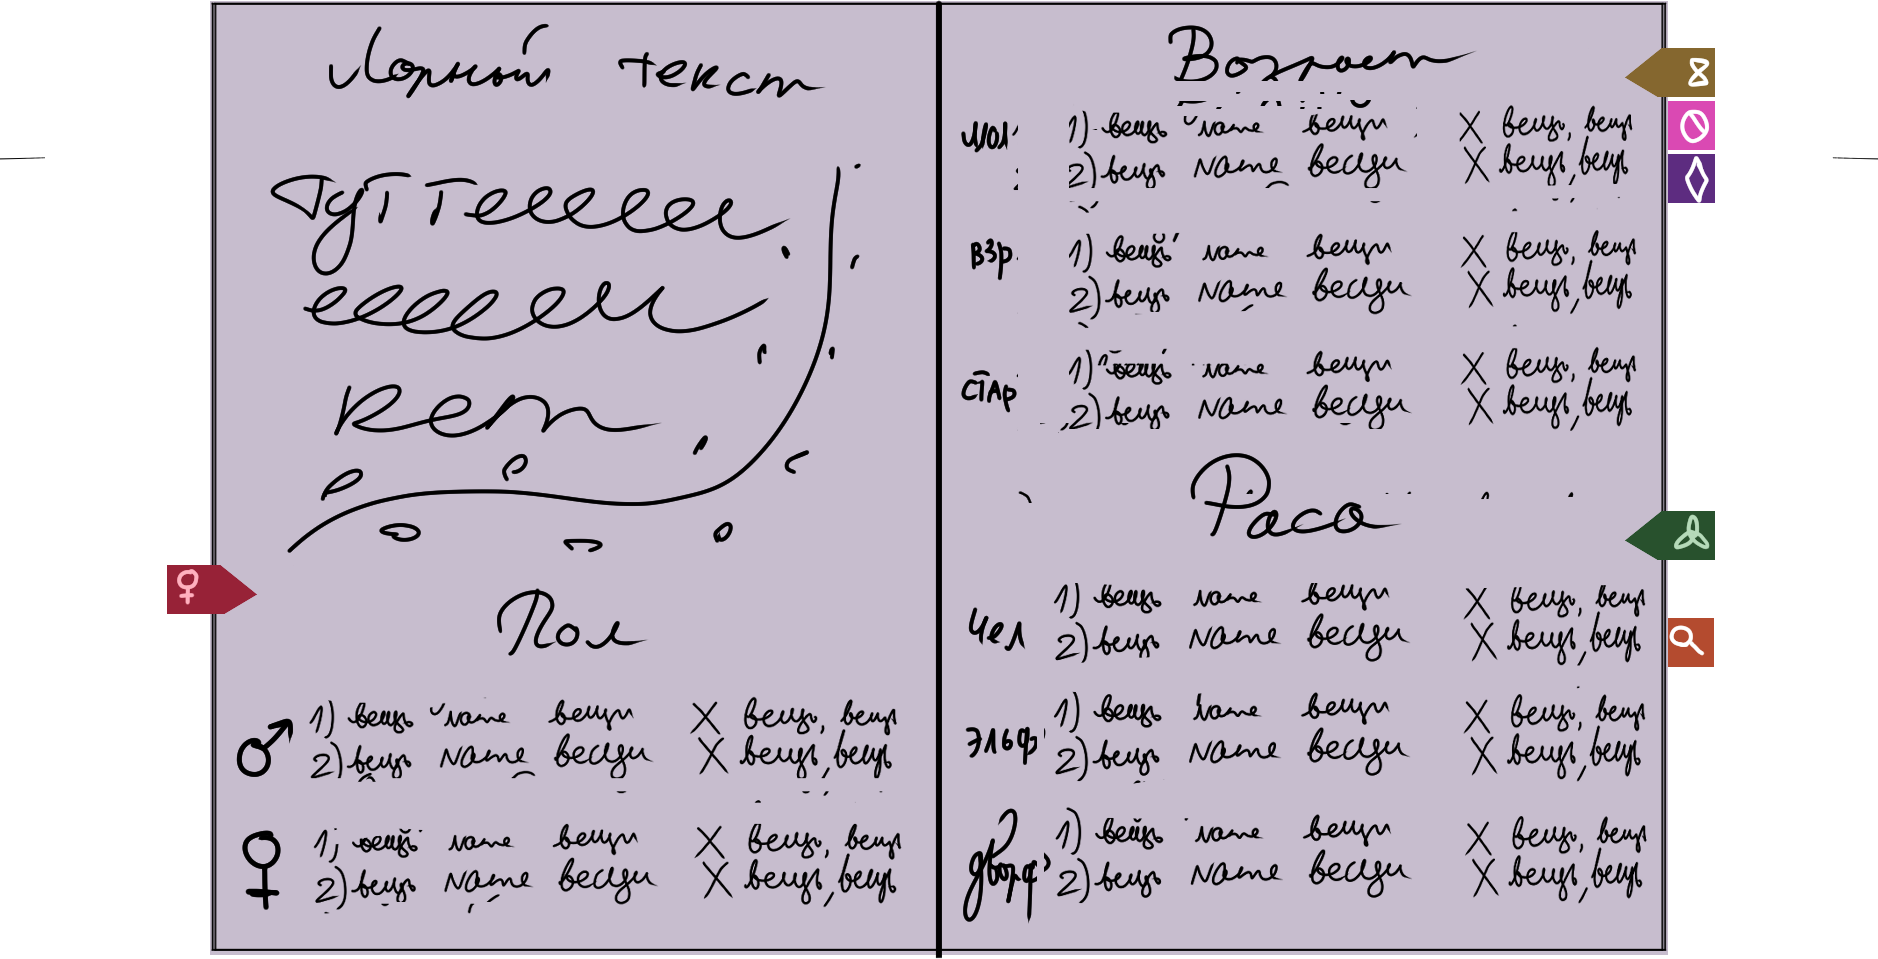 Лорный текст
Тут теееееее
ееееееее
кст
Пол
♂ 1) вещь name вещи X вещь, вещь
2) вещь name вещи X вещь, вещь
♀ 1) вещь name вещи X вещь, вещь
2) вещь name вещи X вещь, вещь
Возраст
мол 1) вещь name вещи X вещь, вещь
2) вещь name вещи X вещь, вещь
взр 1) вещь name вещи X вещь, вещь
2) вещь name вещи X вещь, вещь
стар 1) вещь name вещи X вещь, вещь
2) вещь name вещи X вещь, вещь
Раса
чел 1) вещь name вещи X вещь, вещь
2) вещь name вещи X вещь, вещь
эльф 1) вещь name вещи X вещь, вещь
2) вещь name вещи X вещь, вещь
дворф 1) вещь name вещи X вещь, вещь
2) вещь name вещи X вещь, вещь